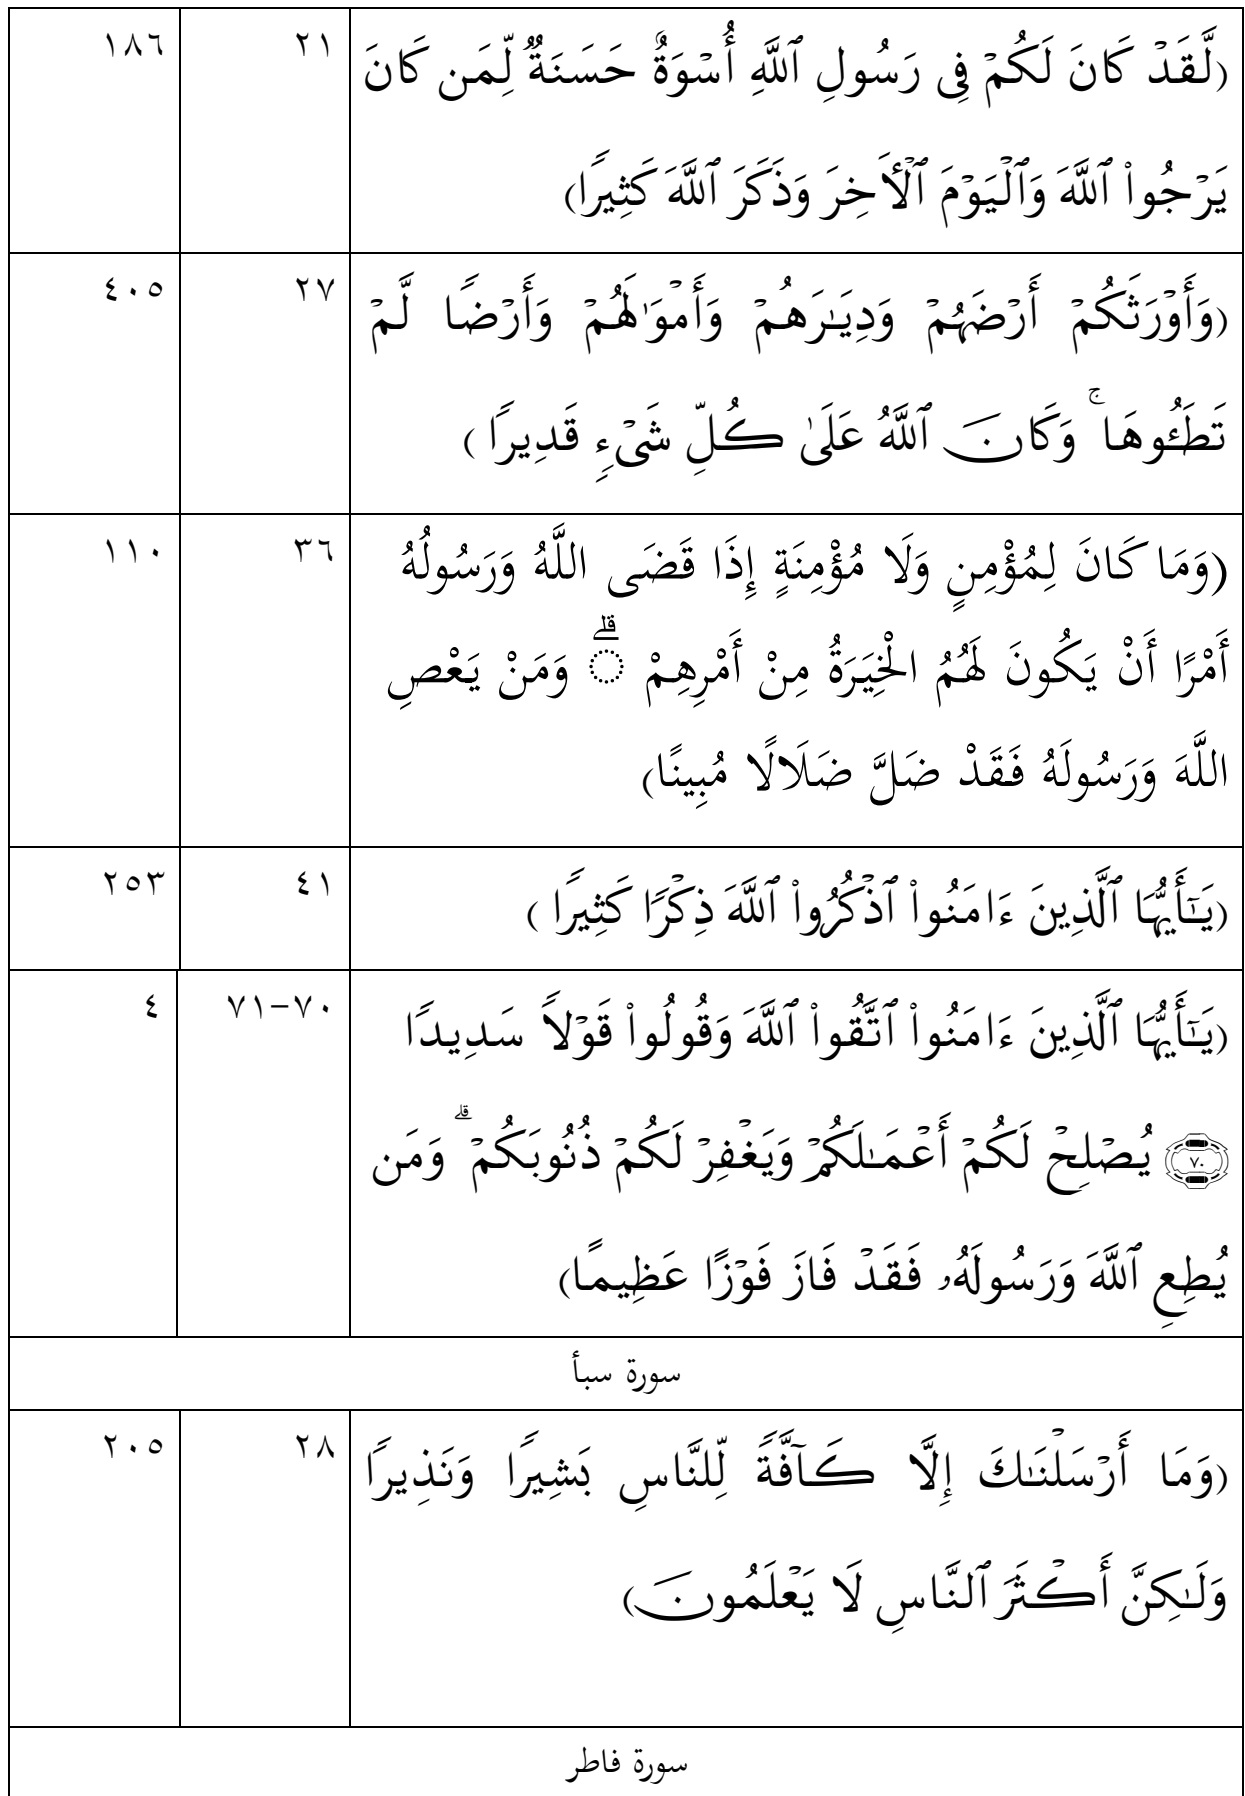 (لَّقَدْ كَانَ لَكُمْ فِى رَسُولِ ٱللَّهِ أُسْوَةٌ حَسَنَةٌ لِّمَن كَانَ ٢١ ١٨٦
يَرْجُوا۟ ٱللَّهَ وَٱلْيَوْمَ ٱلْـَٔاخِرَ وَذَكَرَ ٱللَّهَ كَثِيرًا)
(وَأَوْرَثَكُمْ أَرْضَهُمْ وَدِيَـٰرَهُمْ وَأَمْوَٰلَهُمْ وَأَرْضًا لَّمْ ٢٧ ٤٠٥
تَطَـُٔوهَا ۚ وَكَانَ ٱللَّهُ عَلَىٰ كُلِّ شَىْءٍ قَدِيرًا )
(وَمَا كَانَ لِمُؤْمِنٍ وَلَا مُؤْمِنَةٍ إِذَا قَضَى اللَّهُ وَرَسُولُهُ ٣٦ ١١٠
أَمْرًا أَنْ يَكُونَ لَهُمُ الْخِيَرَةُ مِنْ أَمْرِهِمْ ۗ وَمَنْ يَعْصِ
اللَّهَ وَرَسُولَهُ فَقَدْ ضَلَّ ضَلَالًا مُبِينًا)
(يَـٰٓأَيُّهَا ٱلَّذِينَ ءَامَنُوا۟ ٱذْكُرُوا۟ ٱللَّهَ ذِكْرًا كَثِيرًا ) ٤١ ٢٥٣
(يَـٰٓأَيُّهَا ٱلَّذِينَ ءَامَنُوا۟ ٱتَّقُوا۟ ٱللَّهَ وَقُولُوا۟ قَوْلًا سَدِيدًا ٧٠-٧١ ٤
٧٠ يُصْلِحْ لَكُمْ أَعْمَـٰلَكُمْ وَيَغْفِرْ لَكُمْ ذُنُوبَكُمْ ۗ وَمَن
يُطِعِ ٱللَّهَ وَرَسُولَهُۥ فَقَدْ فَازَ فَوْزًا عَظِيمًا)
سورة سبأ
(وَمَا أَرْسَلْنَـٰكَ إِلَّا كَآفَّةً لِّلنَّاسِ بَشِيرًا وَنَذِيرًا ٢٨ ٢٠٥
وَلَـٰكِنَّ أَكْثَرَ ٱلنَّاسِ لَا يَعْلَمُونَ)
سورة فاطر